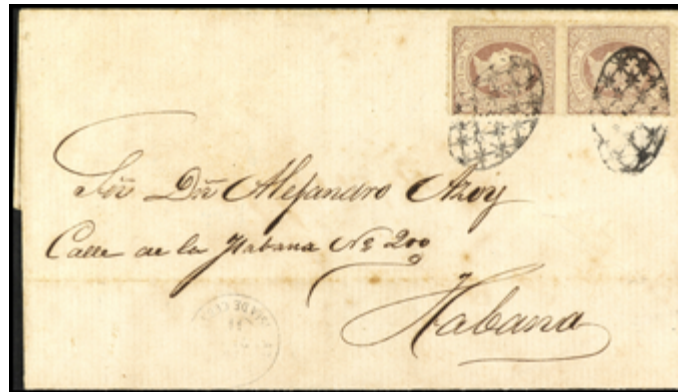 Sñr Dñ Alejandro Azoy
Calle de la Habana Nº 200
Habana